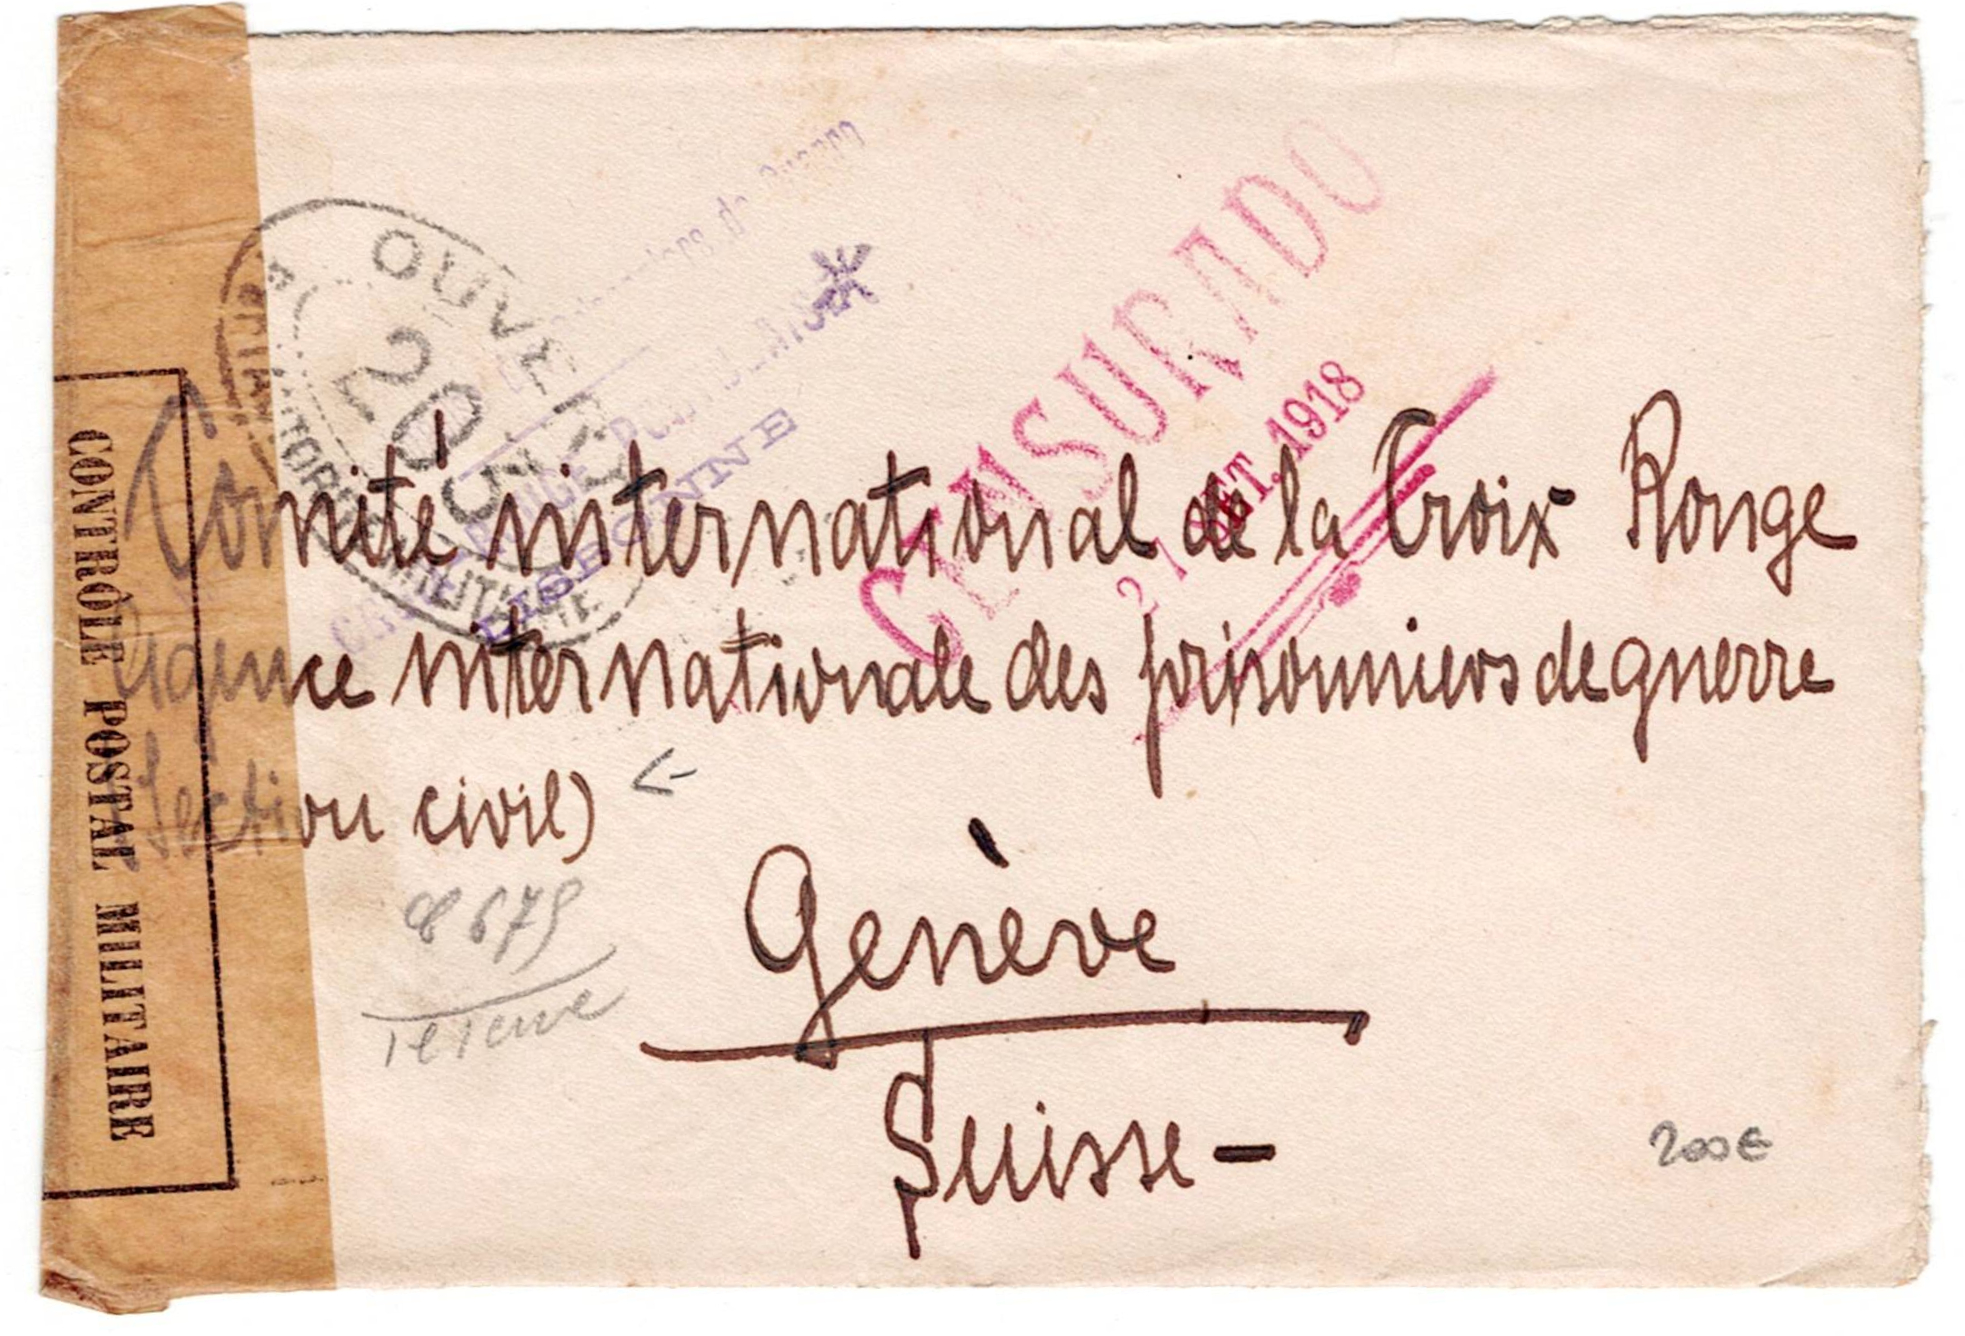 CONTRÔLE POSTAL MILITAIRE
OUVERT
203
MILITAIRE
LISBONNE
CENSURADO
21 SET. 1918
Comité international de la Croix Rouge
Agence internationale des prisonniers de guerre
Section civil)
Genève
Suisse-
reserve
200€